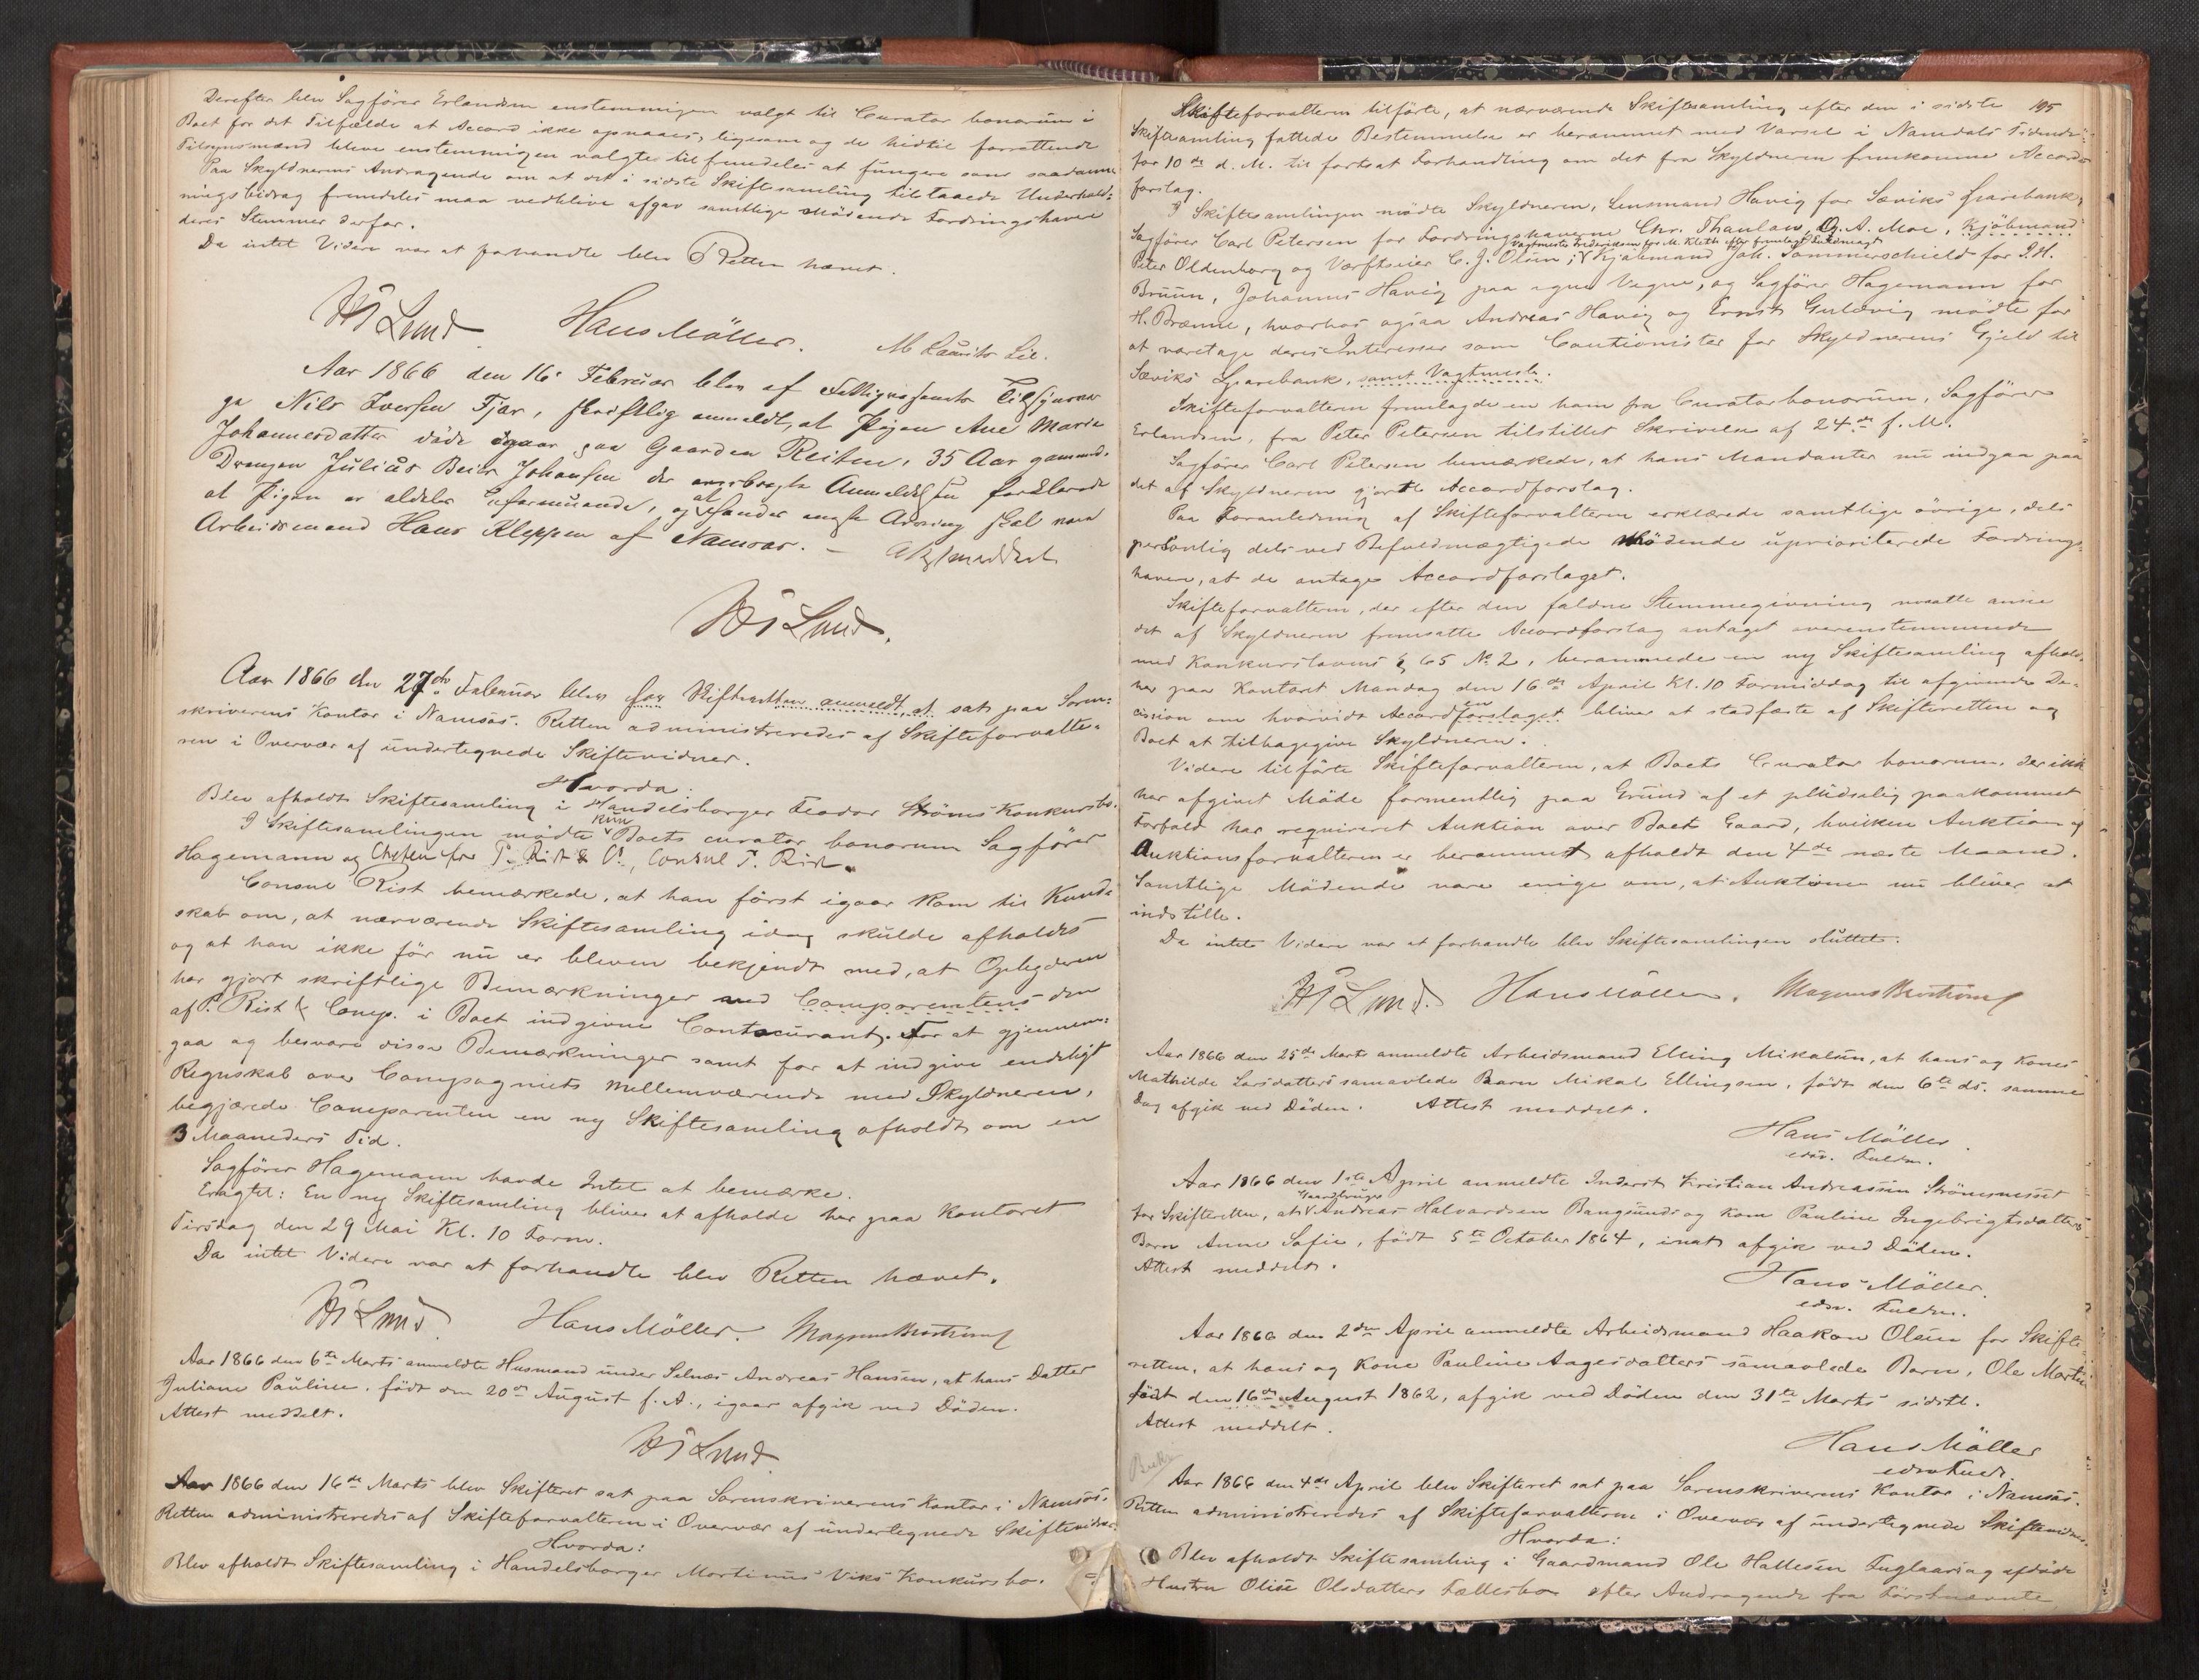 Derefter blev Sagfører Erlandsen enstemmigen valgt til Curator bonorum i
Boet for det Tilfælde at Accord ikke opnaaes, ligesom og de hidtil forrettende
Tilsynsmænd bleve enstemmigen valgte til fremdeles at fungere som saadanne
Paa Skyldnerens Andragende om at det i sidste Skiftesamling tilstaaede Underhold-
ningsbidrag fremdeles maa vedblive afgav samtlige mødende Fordringshavere
deres Stemmer derfor.
Da intet Videre var at forhandle blev Retten hævet.
Lund. Hans Möller. M Laurits
Aar 1866 den 16 Februar blev af
Nils Iversen Tjær, skriftlig anmeldt, at Pigen Ane Marie
Johannesdatter døde igaar paa Gaarden Reiten, 35 Aar gammel.
Drengen Julius Beier Johansen der Anmeldelsen forklarede
at Pigen er aldeles uformuende, og at hendes Arving skal være
Arbeidsmand Hans Kleppen af Namsos. –
Lund.
Aar 1866 den 27de Februar blev Skifteretten anmeldt, at sat paa Soren-
skriverens Kontor i Namsos. Retten administreredes af Skifteforvalte-
ren i Overvær af undertegnede Skiftevidner.
Hvorda:
Blev afholdt Skiftesamling i Handelsborger Teodor Strøms Konkursbo.
I Skiftesamlingen mødte kun Boets curator bonorum Sagfører
Hagemann og Chefen for P. Rist & Co, Consul P. Rist.
Consul Rist bemærkede, at han først igaar kom til Kund-
skab om, at nærværende Skiftesamling idag skulde afholdes
og at han ikke før nu er bleven bekjendt med, at Opbyderen
har gjort skriftlige Bemærkninger ved Comparentens den
af P. Rist & Comp. i Boet indgivne Contocurant. For at gjennem-
gaa og besvare disse Bemærkninger samt for at indgive endeligt
Regnskab over Compagniets Mellemværende med Skyldneren,
begjærede Comparenten en ny Skiftesamling afholdt om en
3 Maaneders Tid.
Sagfører Hagemann havde Intet at bemærke.
Eragtet: En ny Skiftesamling bliver at afholde her paa Kontoret
Tirsdag den 29 Mai Kl. 10 Form.
Da intet Videre var at forhandle blev Retten hævet.
Lund. Hans Möller. Magnus
Aar 1866 den 6te Marts anmeldte Husmand under Selnæs Andreas Hansen, at hans Datter
Juliane Pauline, født den 20de August f. A., igaar afgik ved Døden.
Attest meddelt.
Lund
Aar 1866 den 16de Marts blev Skifteret sat paa Sorenskriverens Kontor i Namsos.
Retten administreredes af Skifteforvalteren i Overvær af undertegnede Skiftevidner.
Hvorda:
Blev afholdt Skiftesamling i Handelsborger Martinus Viks Konkursbo.
195
Skifteforvalteren tilførte, at nærværende Skiftesamling efter den i sidste
Skiftesamling fattede Bestemmelse er berammet med Varsel i Namdals Tidende
for 10de d. M. til fortsat Forhandling om det fra Skyldneren fremkomne Accord-
forslag.
I Skiftesamlingen mødte Skyldneren, Lensmand Havig for Sæviks Sparebank,
Sagfører Carl Petersen for Fordringshaverne Chr. Thaulow, O. A. Moe, Kjøbmand
Vagtmester Frederiksen for M. Kleth efter fremlagt Fuldmagt
Peter Oldenborg og Værftseier C. J. Olsen; Kjøbmand Joh. Sommerschield for P. H.
Bruun, Johannes Havig paa egne Vegne, og Sagfører Hagemann for
H. Brænne, hvorhos ogsaa Andreas Havig og Ernst Gulsvig mødte for
at varetage deres Interesser som Cautionister for Skyldnerens Gjeld til
Sæviks Sparebank, samt Vagtmester.
Skifteforvalteren fremlagde en ham fra Curator bonorum, Sagfører
Erlandsen, fra Peter Petersen tilstillet Skrivelse af 24de f. M.
Sagfører Carl Petersen bemærkede, at hans Mandanter nu indgaa paa
det af Skyldneren gjorte Accordforslag.
Paa Foranledning af Skifteforvalteren erklærede samtlige øvrige, dels
personlig dels ved Befuldmægtigede mødende uprioriterede Fordrings-
havere, at de antage Accordforslaget.
Skifteforvalteren, der efter den faldne Stemmegivning maatte anse
det af Skyldneren fremsatte Accordforslag antaget overensstemmende
med Konkurslovens § 65 No 2, berammede en ny Skiftesamling afhol-
her paa Kontoret Mandag den 16de April Kl. 10 Formiddag til afgivende De-
cision om hvorvidt Accordforslaget bliver at stadfæste af Skifteretten og
Boet at tilbagegive Skyldneren.
Videre tilførte Skifteforvalteren, at Boets Curator bonorum, der ikke
har afgivet Møde formentlig paa Grund af et pludselig paakommet
Forfald har requireret Auktion over Boets Gaard, hvilken Auktion af
Auktionsforvalteren er berammet afholdt den 4de næste Maaned.
Samtlige Mødende vare enige om, at Auktionen nu bliver at
indstille.
Da intet Videre var at forhandle blev Skiftesamlingen sluttet.
Lund. Hans Möller. Magnus
Aar 1866 den 25de Marts anmeldte Arbeidsmand Elling Mikalsen, at hans og Kones
Mathilde Larsdatters samavlede Barn Mikal Ellingsen, født den 6te ds. samme
Dag afgik ved Døden. Attest meddelt.
Hans Möller
edsv. Fuldm.
Aar 1866 den 1ste April anmeldte Inderst Kristian Andreassen Strömsnesset
Gaardbruger
for Skifteretten, at Andreas Halvardsen Bangsunds og Kone Pauline Ingebrigtsdatters
Barn Anne Sofie, født 5te October 1864, inat afgik ved Døden.
Attest meddelt.
Hans Möller.
edsv. Fuldm.
Aar 1866 den 2den April anmeldte Arbeidsmand Haakon Olsen for Skifte-
retten, at hans og Kone Pauline Aagesdatters samavlede Barn, Ole Martin
født den 16de August 1862, afgik ved Døden den 31te Marts sidstl.
Attest meddelt.
Hans Möller
edsv Fuldm.
Aar 1866 den 4de April blev Skifteret sat paa Sorenskriverens Kontor i Namsos.
Retten administreredes af Skifteforvalteren i Overvær af undertegnede Skiftevidner.
Hvorda:
Blev afholdt Skiftesamling i Gaardmand Ole Hallesen Fuglaas og afdøde
Hustru Olise Olsdatters Fællesbo efter Andragende fra Førstnævnte